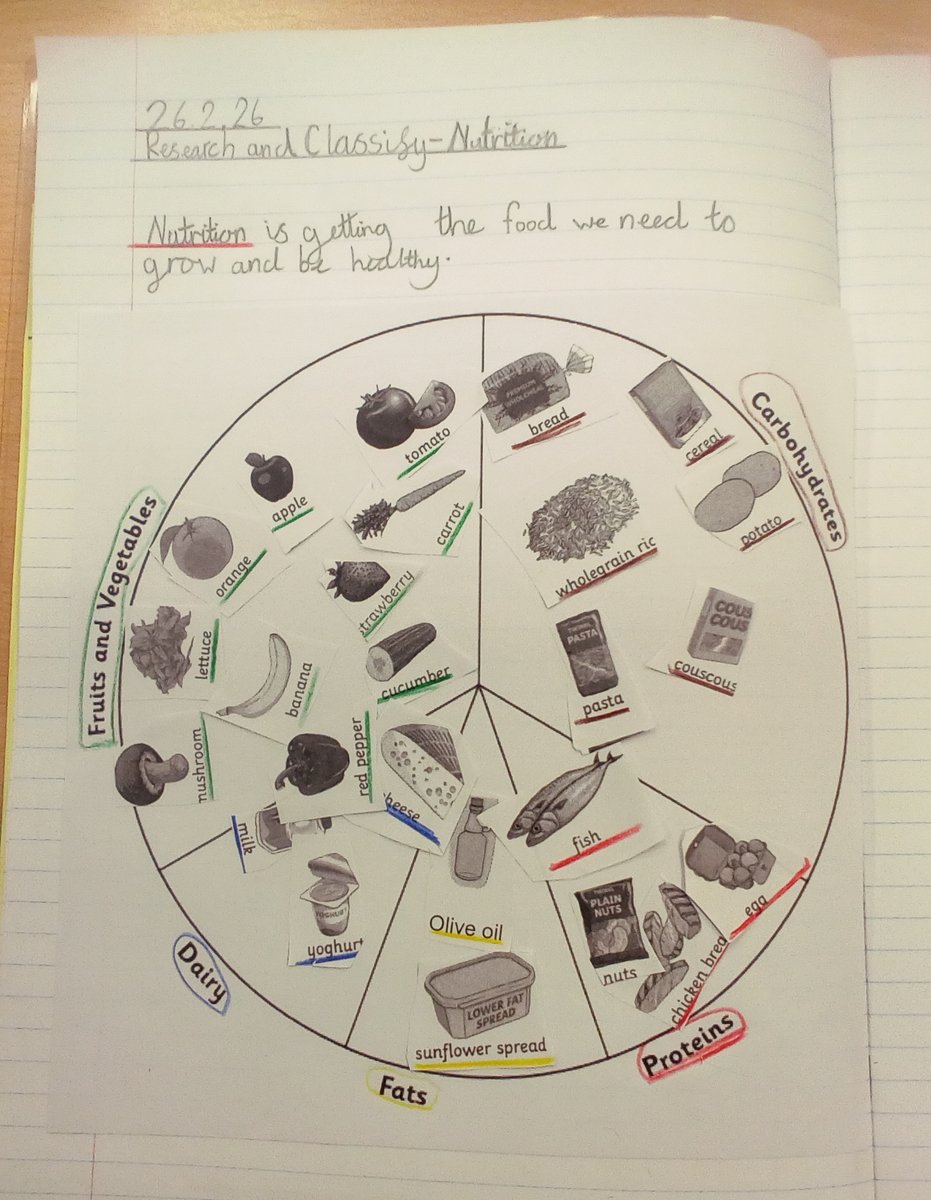 26.2.26
Research and Classify-Nutrition
Nutrition is getting the food we need to
grow and be healthy.
Fruits and Vegetables
tomato
apple
carrot
orange
strawberry
lettuce
banana
cucumber
mushroom
red pepper
Carbohydrates
PREMIUM
WHOLEMEAL
bread
cereal
potato
wholegrain ric
PASTA
pasta
COUS
COUS
couscous
Dairy
heese
milk
YOGHURT
yoghurt
Fats
Olive oil
LOWER FAT
SPREAD
sunflower spread
Proteins
fish
egg
PLAIN
NUTS
nuts
chicken brea